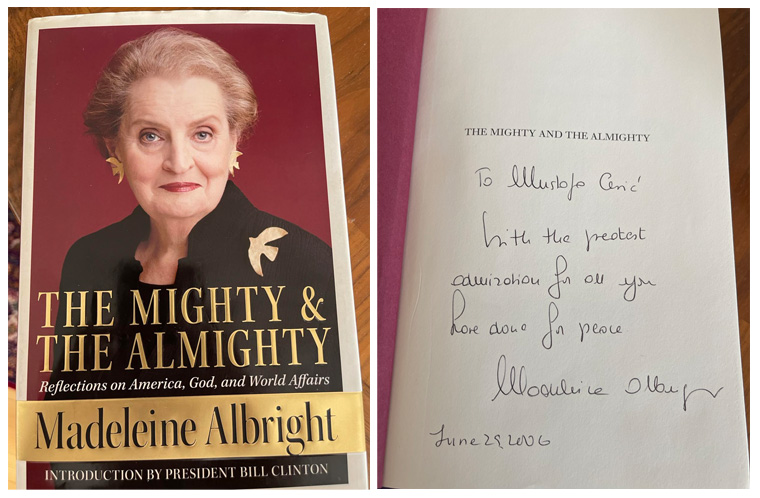 THE MIGHTY &
THE ALMIGHTY
Reflections on America, God, and World Affairs
Madeleine Albright
INTRODUCTION BY PRESIDENT BILL CLINTON
THE MIGHTY AND THE ALMIGHTY
To Mustafa Cerić
With the greatest
admiration for all you
have done for peace
Madeleine Albright
June 29, 2006